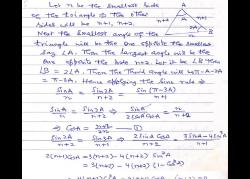 Let n be the smallest side
of the triangle & the other
sides will be n+1, n+2.
Next the smallest angle of the
triangle will be the one opposite the smallest
Say ∠A. Then the largest angle will be the
one opposite the side n+2. Let it be ∠B then
∠B = 2∠A. Then the Third angle will π-A-2A
= π-3A. Hence applying the sine rule ⇒
SinA/n = Sin2A/n+2 = Sin(π-3A)/n+1
SinA/n = Sin2A/n+2 ⇒ SinA/2SinA CosA = n/n+2
⇒ CosA = n+2/2n
SinA/n = Sin2A/n+2 ⇒ 2SinA CosA/n+2 = 3SinA-4Sin³A/n+1
2(n+1)CosA = 3(n+2) - 4(n+2) Sin²A
= 3(n+2) - 4(n+2) (1-Cos²A)